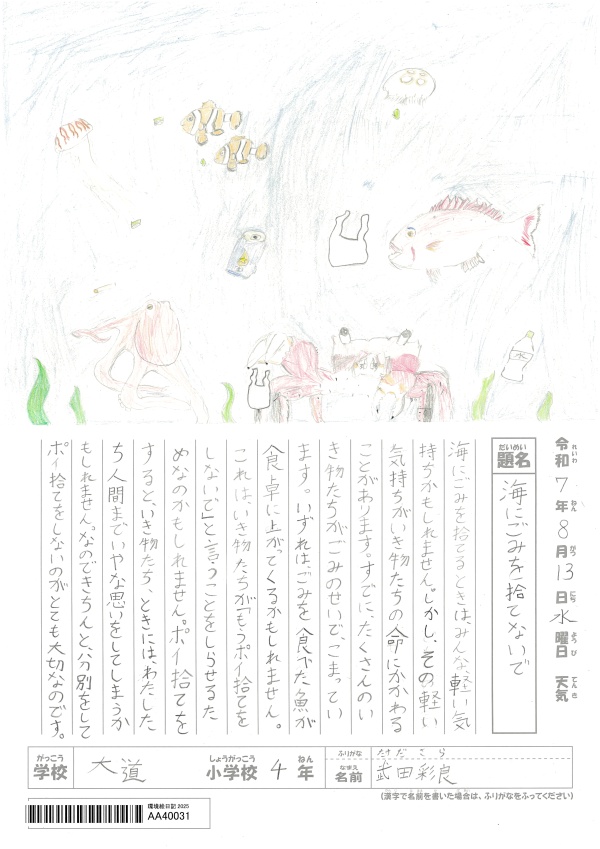 令和7年8月13日水曜日 天気
れいわ ねん がつ にち ようび てんき
だいめい
題名
海にごみを捨てないで
海にごみを捨てるときは、みんな、軽い気
持ちかもしれません。しかし、その軽い
気持ちがいき物たちの命にかかわる
ことがあります。すでに、たくさんのい
き物たちがごみのせいで、こまってい
ます。いずれは、ごみを食べた魚が
食卓に上がってくるかもしれません。
これは、いき物たちが「もうポイ捨てを
しないで」と言うことをしらせるた
めなのかもしれません。ポイ捨てを
すると、いき物たち、ときには、わたした
ち人間までいやな思いをしてしまうか
もしれません。なのできちんと、分別をして
ポイ捨てをしないのがとても大切なのです。
がっこう しょうがっこう ねん
学校 大道 小学校 4年
ふりがな たけださら
なまえ
名前 武田彩良
(漢字で名前を書いた場合は、ふりがなをふってください)
環境絵日記2025
AA40031
水